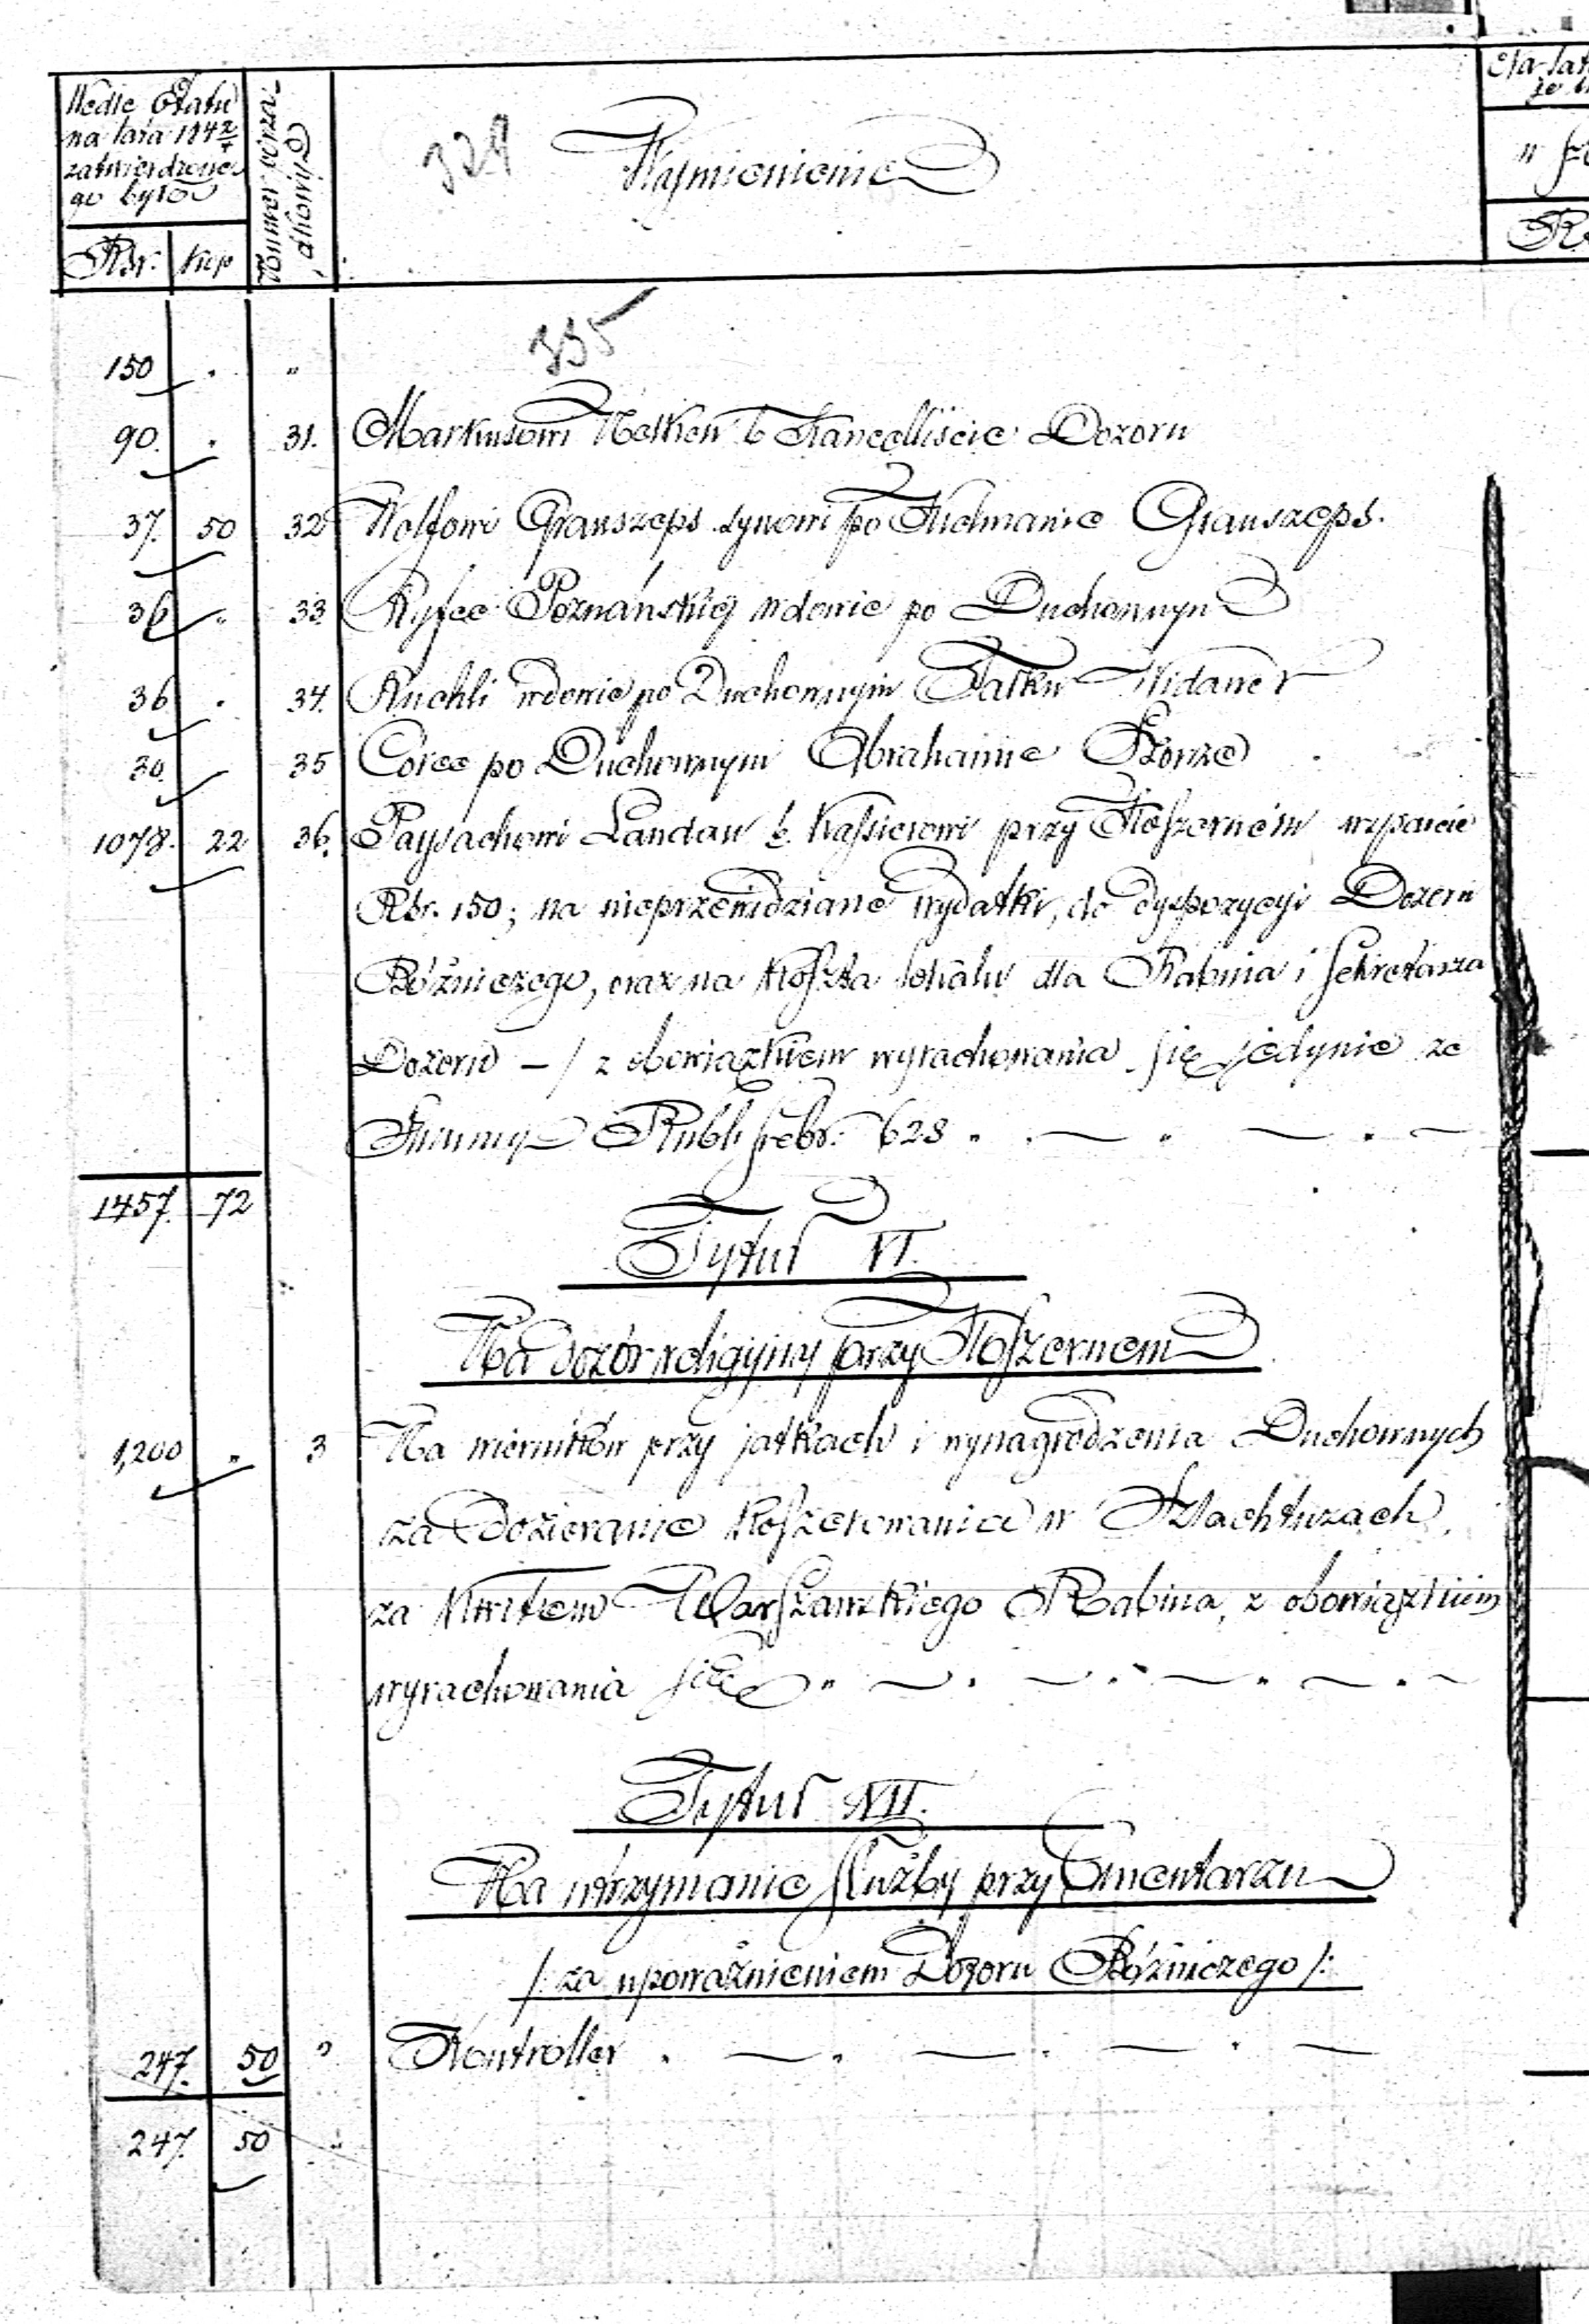 Wedle Etatu
na lata 184 2/4
zatwierdzone
go było
Rsr. kop
Numer porzą-
dkowy
329
Wymienienie
Na lat
R
335
150 . "
90. . 31. Markusowi Netken b. Kancelliście Dozoru
37. 50 32 Wolfowi Grauszeps synowi po Nuchmanie Grauszeps.
36 " 33. Ryfce Poznańskiej wdowie po Duchownym
36 . 34. Ruchli wdowie po Duchownym Falku
30. 35 Córce po Duchownym Abrahamie
1078. 22 36. Paysachowi Landau b. Kassierowi przy Koszernem wsparcie
Rsr. 150; na nieprzewidziane wydatki, do dyspozycyi Dozoru
Bóżniczego, oraz na koszta lokalu dla Rabina i Sekretarza
Dozoru – / z obowiązkiem wyrachowania się jedynie ze
Summy Rubli srebr. 628 " — " — " —
1457. 72
Tytuł VI.
Na dozór religijny przy Koszernem
1,200 " 3 Na wierników przy jatkach i wynagrodzenia Duchownych
za dozieranie koszerowania w Szlachtuzach,
za kwitem Warszawskiego Rabina, z obowiązkiem
wyrachowania się " — " — " — " —
Tytuł VII.
Na utrzymanie służby przy Cmentarzu
/: za upoważnieniem Dozoru Bóżniczego /:
247. 50 " Kontroller . — " — " — " —
247. 50 "